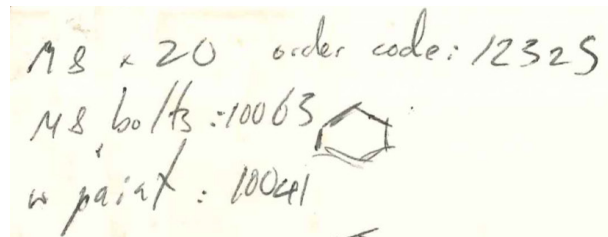 M8 x 20 order code: 12325
M8 bolts: 10063
paint: 10041